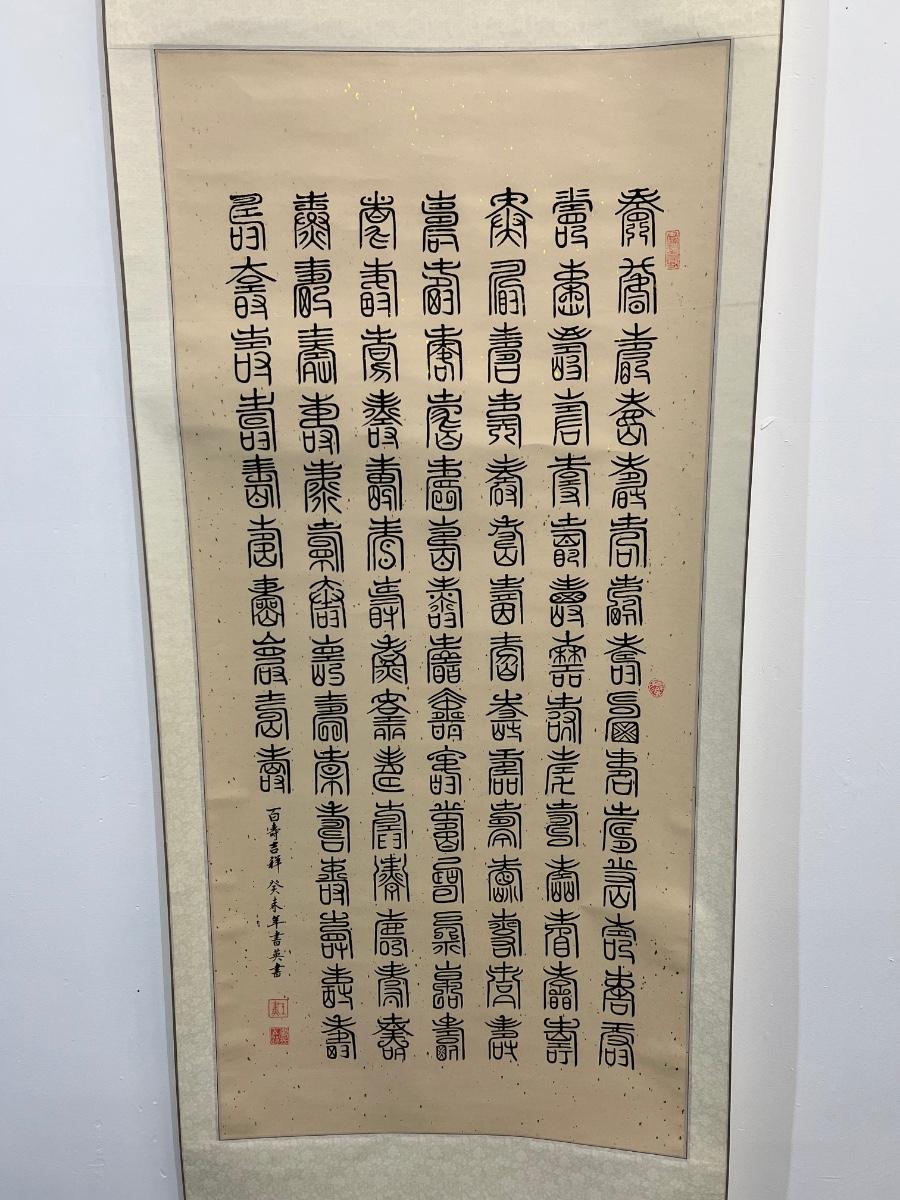 壽壽壽壽壽壽壽壽壽壽壽壽壽壽壽
壽壽壽壽壽壽壽壽壽壽壽壽壽壽壽
壽壽壽壽壽壽壽壽壽壽壽壽壽壽壽
壽壽壽壽壽壽壽壽壽壽壽壽壽壽壽
壽壽壽壽壽壽壽壽壽壽壽壽壽壽壽
壽壽壽壽壽壽壽壽壽壽壽壽壽壽壽
壽壽壽壽壽壽壽壽壽壽
百壽吉祥 癸未年書英書